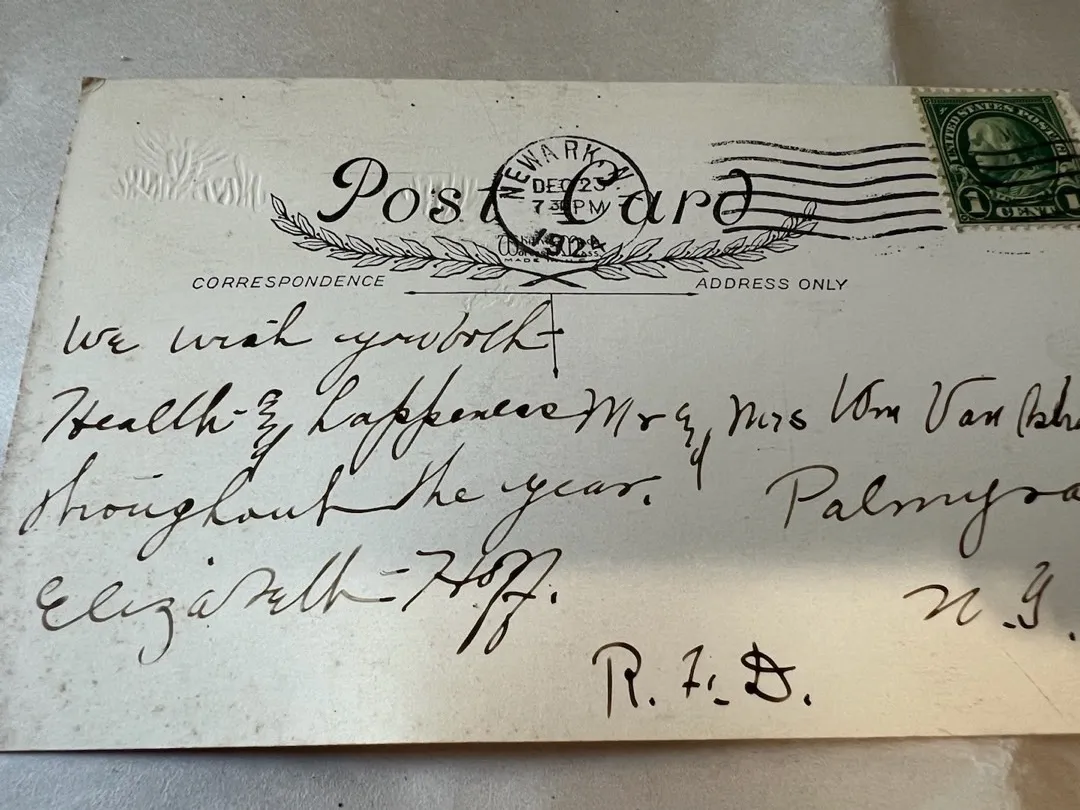 Post Card
NEWARK N.
DEC 23
7 30 PM
1924
UNITED STATES POST
1 CENT
MADE IN
CORRESPONDENCE
ADDRESS ONLY
We wish you both
Health & happeness
throughout the year.
Elizabeth Hoff.
Mr & Mrs Wm Van
Palmyra
N.Y.
R.F.D.